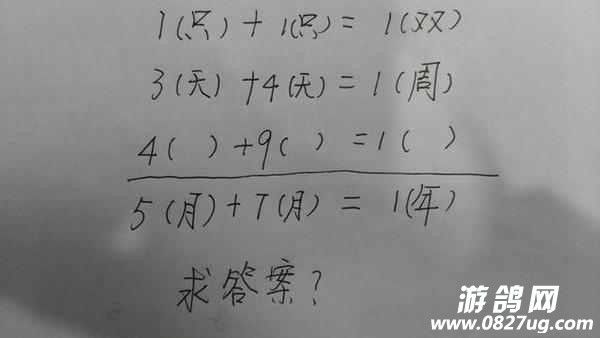 1(只)+1(只)=1(双)
3(天)+4(天)=1(周)
4( )+9( )=1( )
5(月)+7(月)=1(年)
求答案?
游鸽网
www.0827ug.com